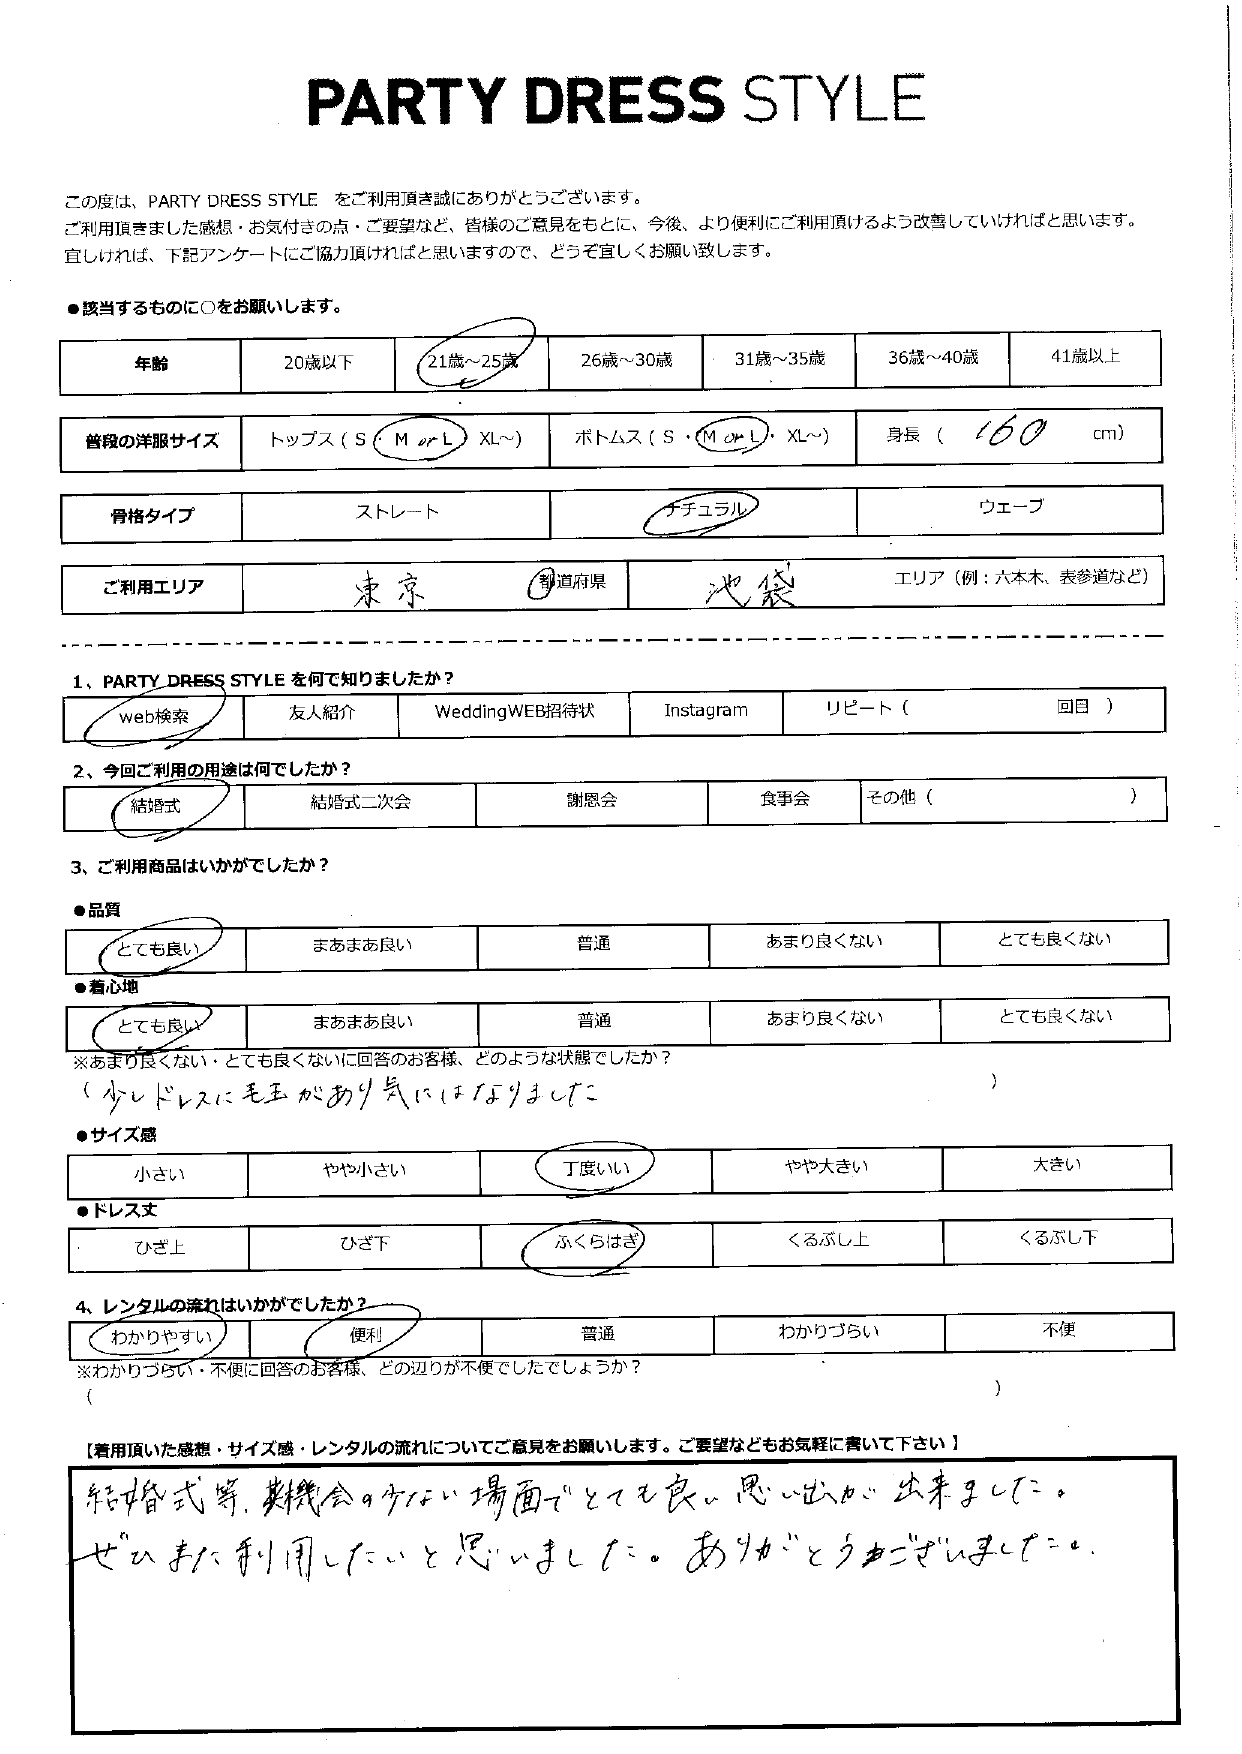 PARTY DRESS STYLE
この度は、PARTY DRESS STYLE をご利用頂き誠にありがとうございます。
ご利用頂きました感想・お気付きの点・ご要望など、皆様のご意見をもとに、今後、より便利にご利用頂けるよう改善していければと思います。
宜しければ、下記アンケートにご協力頂ければと思いますので、どうぞ宜しくお願い致します。
●該当するものに○をお願いします。
年齢 20歳以下 21歳～25歳 26歳～30歳 31歳～35歳 36歳～40歳 41歳以上
普段の洋服サイズ トップス ( S ・ M or L ・ XL～) ボトムス ( S ・ M or L ・ XL～) 身長 ( 160 cm)
骨格タイプ ストレート ナチュラル ウェーブ
ご利用エリア 東京 都道府県 池袋 エリア（例：六本木、表参道など）
1、PARTY DRESS STYLE を何で知りましたか？
web検索 友人紹介 WeddingWEB招待状 Instagram リピート ( 回目 )
2、今回ご利用の用途は何でしたか？
結婚式 結婚式二次会 謝恩会 食事会 その他 ( )
3、ご利用商品はいかがでしたか？
●品質
とても良い まあまあ良い 普通 あまり良くない とても良くない
●着心地
とても良い まあまあ良い 普通 あまり良くない とても良くない
※あまり良くない・とても良くないに回答のお客様、どのような状態でしたか？
( 少しドレスに毛玉があり気にはなりました )
●サイズ感
小さい やや小さい 丁度いい やや大きい 大きい
●ドレス丈
ひざ上 ひざ下 ふくらはぎ くるぶし上 くるぶし下
4、レンタルの流れはいかがでしたか？
わかりやすい 便利 普通 わかりづらい 不便
※わかりづらい・不便に回答のお客様、どの辺りが不便でしたでしょうか？
( )
【着用頂いた感想・サイズ感・レンタルの流れについてご意見をお願いします。ご要望などもお気軽に書いて下さい 】
結婚式等、機会の少ない場面でとても良い思い出が出来ました。
ぜひまた利用したいと思いました。ありがとうございました。